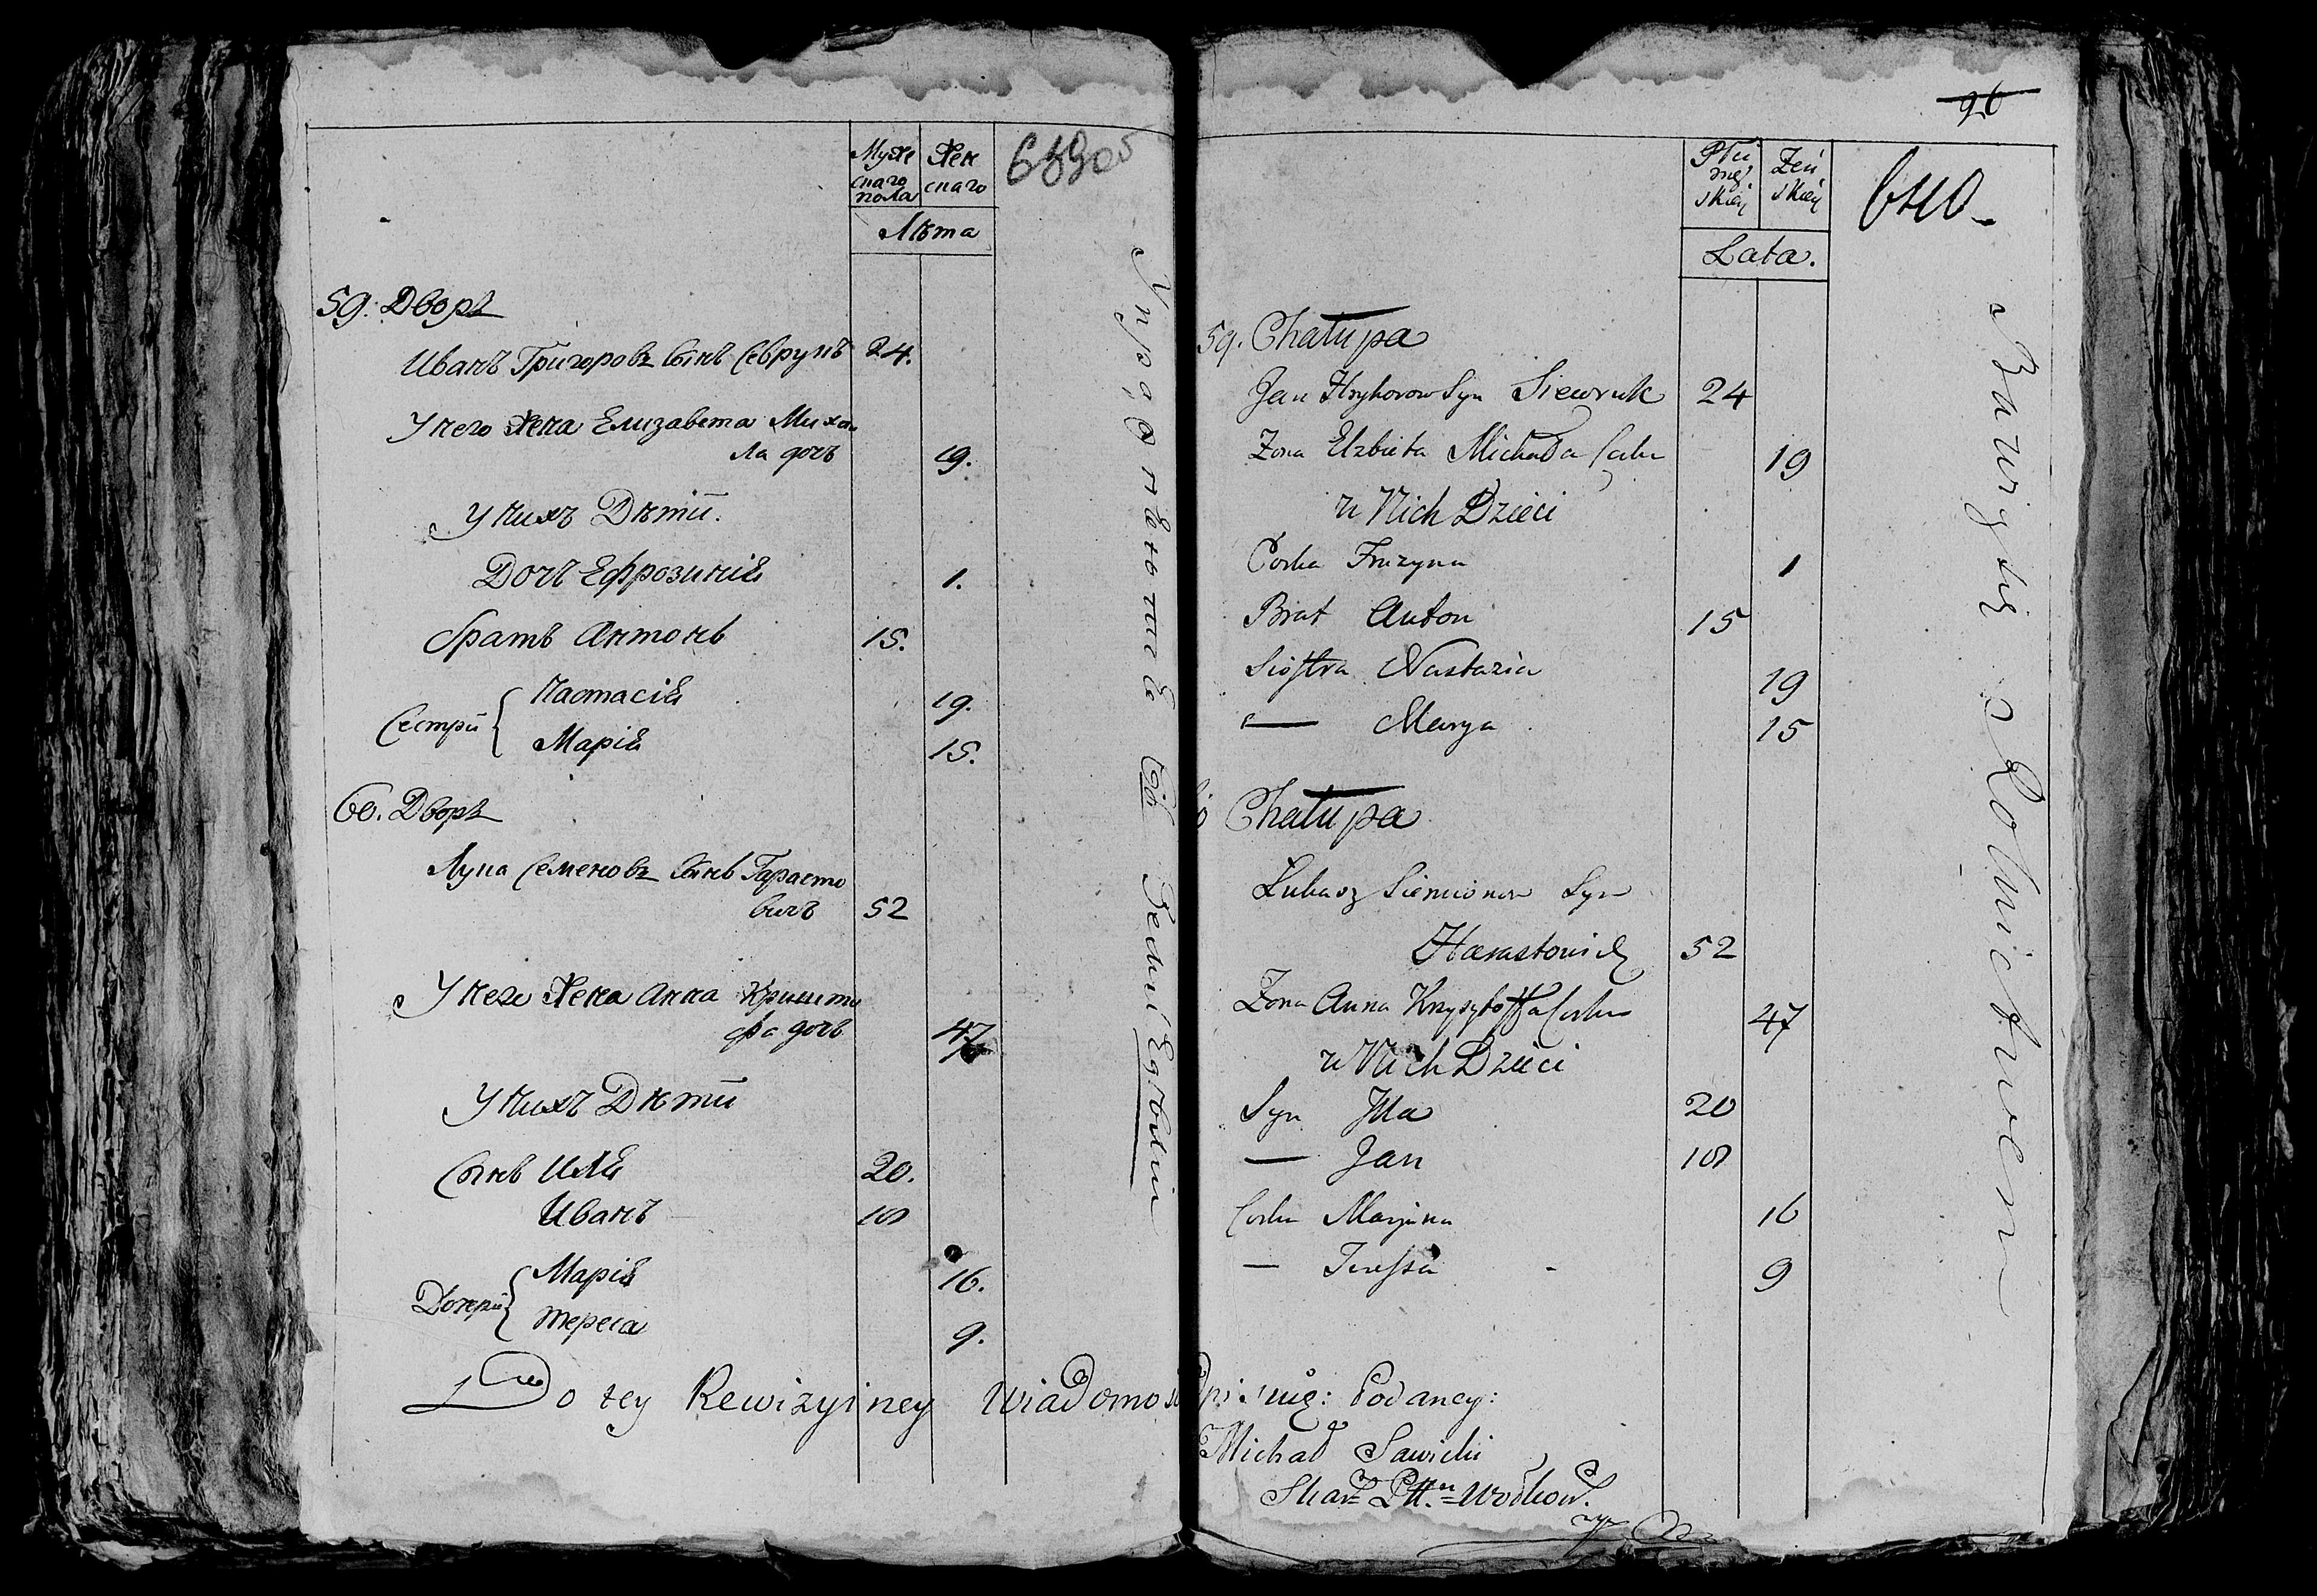 Муже
скаго
пола
Жен
скаго
Лѣта
59. Дворъ
Иванъ Григоровъ сынъ Севрукъ 24.
У него жена Елизавета Миха
ла дочь 19.
У нихъ Дѣти.
Дочь Ефрозинія 1.
братъ Антонъ 15.
Сестри { Настасія 19.
Марія 15.
60. Дворъ
Лука Семеновъ сынъ Гарасто
вичъ 52
У него жена Анна Кришто
фа дочь 47
У нихъ Дѣти
Сынъ Илія 20.
Иванъ 18
Дочери { Марія 16.
Тереса 9.
Do tey Rewizyiney Wiadomo
96
Męż
skiey
Żeń
skiey
Lata.
59. Chałupa
Jan Hryhorow Syn Siewruk 24
Zona Elzbieta Michała Corka 19
u Nich Dzieci
Corka Fruzyna 1
Brat Anton 15
Siostra Nastazia 19
— Marya 15
Chałupa
Łukasz Siemionow Syn
Harastowicz 52
Zona Anna Krzysztoffa Corka 47
u Nich Dzieci
Syn Ila 20
— Jan 18
Corka Maryina 16
— Teressa 9
Podancy:
Michał Sawicki